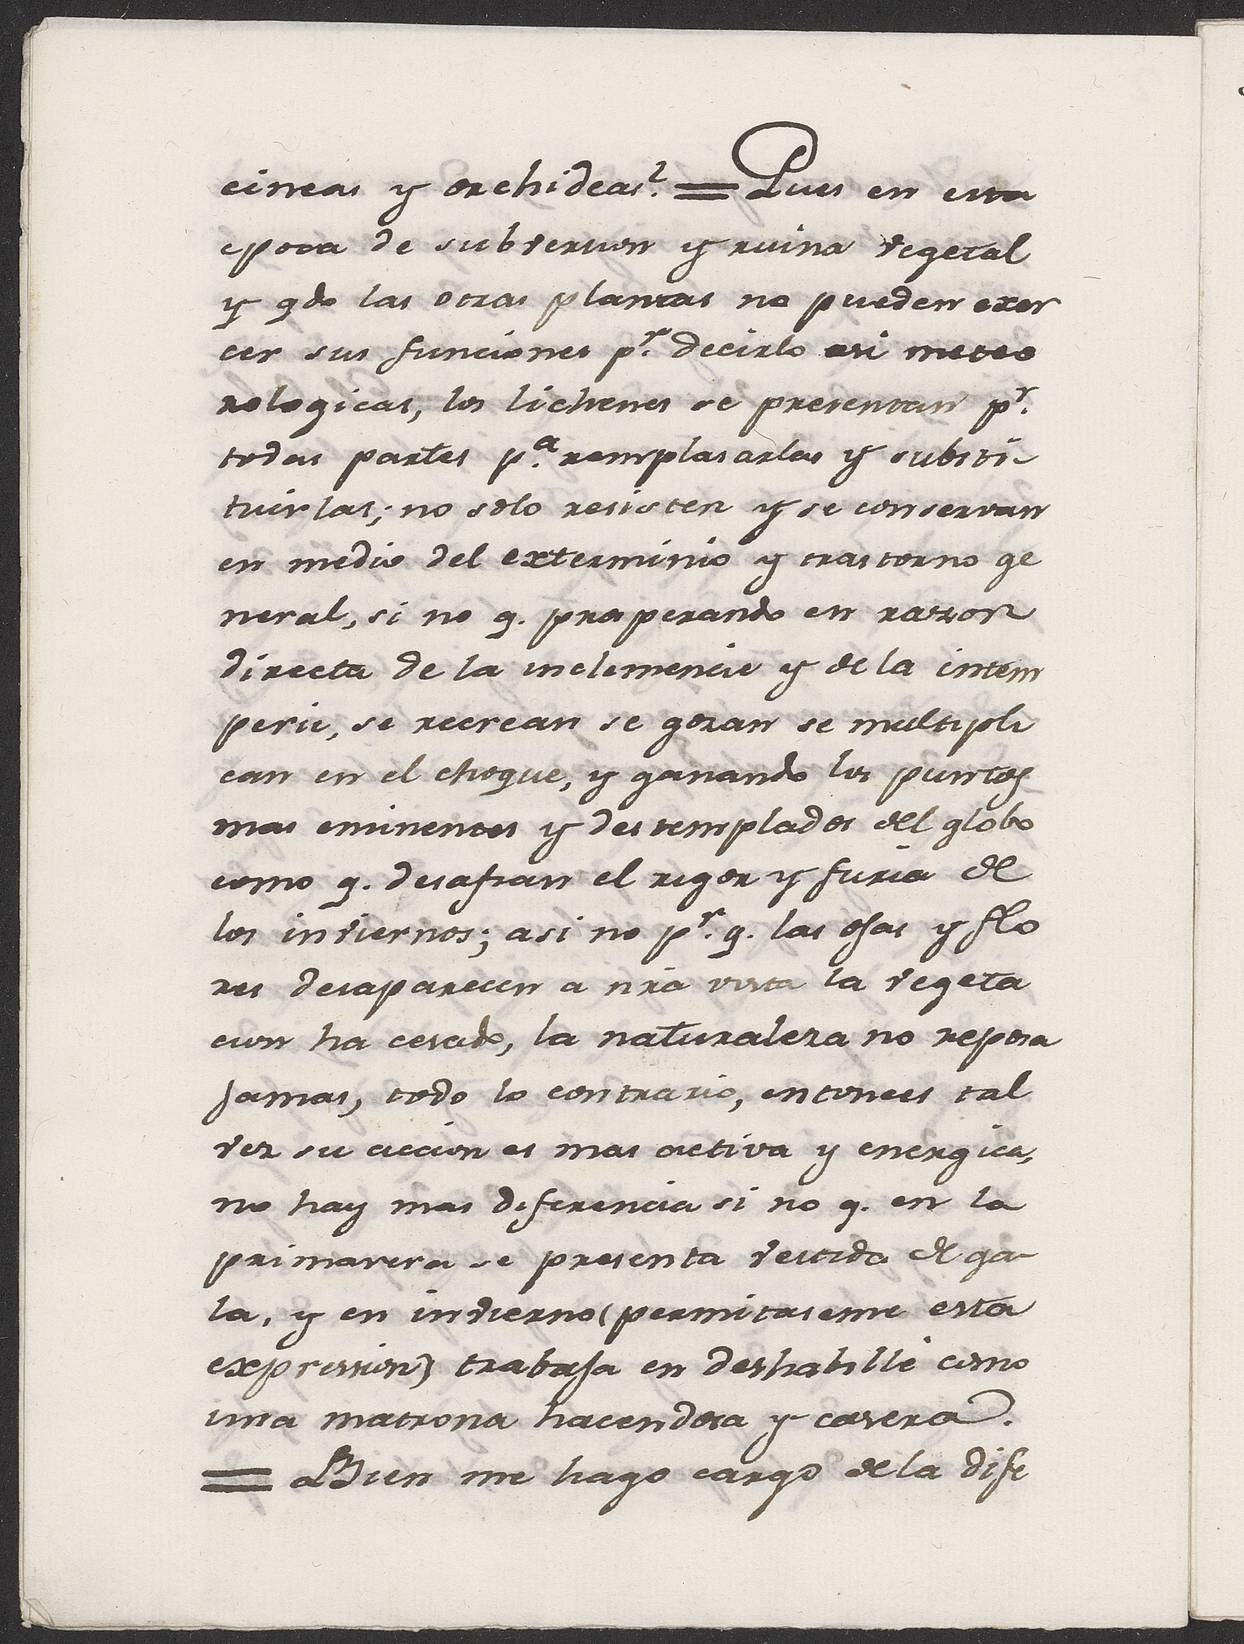 cineas y orchideas? = Pues en esta
epoca de subversion y ruina vegetal
y qdo las otras plantas no pueden exer
cer sus funciones pr. decirlo asi meteo
rologicas, los lichenes se presentan pr.
todas partes pa. remplasarlas y substi-
tuirlas; no solo resisten y se conservan
en medio del exterminio y trastorno ge
neral, si no q. prosperando en razon
directa de la inclemencia y de la intem
perie, se recrean se gozan se multipli
can en el choque, y ganando los puntos
mas eminentes y destemplados del globo
como q. desafian el rigor y furia de
los inviernos; asi no pr. q. las ojas y flo
res desaparecen a nra vista la vegeta
cion ha cesado, la naturaleza no reposa
jamas, todo lo contrario, entonces tal
vez su accion es mas activa y energica,
no hay mas diferencia si no q. en la
primavera se presenta vestida de ga-
la, y en invierno (permitaseme esta
expression) trabaja en deshabillé como
una matrona hacendosa y casera.
= Bien me hago cargo de la dife